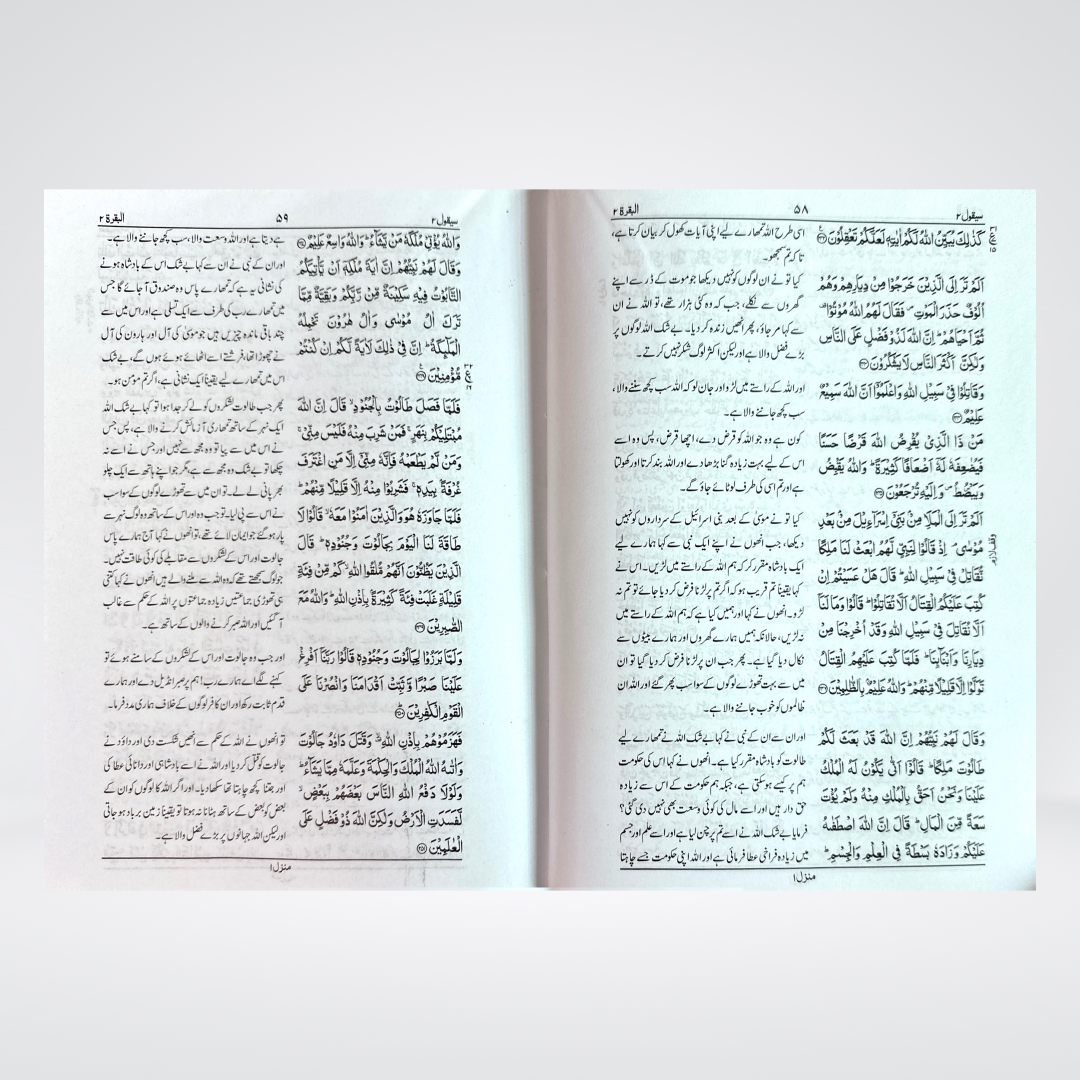 سیقول ۲
۵۸
البقرة ۲
كَذٰلِكَ يُبَيِّنُ اللّٰهُ لَكُمْ اٰيٰتِهٖ لَعَلَّكُمْ تَعْقِلُوْنَ ﴿۲۴۲﴾
اَلَمْ تَرَ اِلَى الَّذِيْنَ خَرَجُوْا مِنْ دِيَارِهِمْ وَهُمْ
اُلُوْفٌ حَذَرَ الْمَوْتِ ۪ فَقَالَ لَهُمُ اللّٰهُ مُوْتُوْا ۟
ثُمَّ اَحْيَاهُمْ ؕ اِنَّ اللّٰهَ لَذُوْ فَضْلٍ عَلَى النَّاسِ
وَلٰكِنَّ اَكْثَرَ النَّاسِ لَا يَشْكُرُوْنَ ﴿۲۴۳﴾
وَقَاتِلُوْا فِيْ سَبِيْلِ اللّٰهِ وَاعْلَمُوْٓا اَنَّ اللّٰهَ سَمِيْعٌ
عَلِيْمٌ ﴿۲۴۴﴾
مَنْ ذَا الَّذِيْ يُقْرِضُ اللّٰهَ قَرْضًا حَسَنًا
فَيُضٰعِفَهٗ لَهٗٓ اَضْعَافًا كَثِيْرَةً ؕ وَاللّٰهُ يَقْبِضُ
وَيَبْصُۜطُ ۪ وَاِلَيْهِ تُرْجَعُوْنَ ﴿۲۴۵﴾
اَلَمْ تَرَ اِلَى الْمَلَاِ مِنْۢ بَنِيْٓ اِسْرَآءِيْلَ مِنْۢ بَعْدِ
مُوْسٰى ۘ اِذْ قَالُوْا لِنَبِيٍّ لَّهُمُ ابْعَثْ لَنَا مَلِكًا
نُّقَاتِلْ فِيْ سَبِيْلِ اللّٰهِ ؕ قَالَ هَلْ عَسَيْتُمْ اِنْ
كُتِبَ عَلَيْكُمُ الْقِتَالُ اَلَّا تُقَاتِلُوْا ؕ قَالُوْا وَمَا لَنَآ
اَلَّا نُقَاتِلَ فِيْ سَبِيْلِ اللّٰهِ وَقَدْ اُخْرِجْنَا مِنْ
دِيَارِنَا وَاَبْنَآئِنَا ؕ فَلَمَّا كُتِبَ عَلَيْهِمُ الْقِتَالُ
تَوَلَّوْا اِلَّا قَلِيْلًا مِّنْهُمْ ؕ وَاللّٰهُ عَلِيْمٌۢ بِالظّٰلِمِيْنَ ﴿۲۴۶﴾
وَقَالَ لَهُمْ نَبِيُّهُمْ اِنَّ اللّٰهَ قَدْ بَعَثَ لَكُمْ
طَالُوْتَ مَلِكًا ؕ قَالُوْٓا اَنّٰى يَكُوْنُ لَهُ الْمُلْكُ
عَلَيْنَا وَنَحْنُ اَحَقُّ بِالْمُلْكِ مِنْهُ وَلَمْ يُؤْتَ
سَعَةً مِّنَ الْمَالِ ؕ قَالَ اِنَّ اللّٰهَ اصْطَفٰىهُ
عَلَيْكُمْ وَزَادَهٗ بَسْطَةً فِي الْعِلْمِ وَالْجِسْمِ ؕ
اسی طرح اللہ تمھارے لیے اپنی آیات کھول کر بیان کرتا ہے،
تاکہ تم سمجھو۔
کیا تو نے ان لوگوں کو نہیں دیکھا جو موت کے ڈر سے اپنے
گھروں سے نکلے، جب کہ وہ کئی ہزار تھے، تو اللہ نے ان
سے کہا مر جاؤ، پھر انھیں زندہ کر دیا۔ بے شک اللہ لوگوں پر
بڑے فضل والا ہے اور لیکن اکثر لوگ شکر نہیں کرتے۔
اور اللہ کے راستے میں لڑو اور جان لو کہ اللہ سب کچھ سننے والا،
سب کچھ جاننے والا ہے۔
کون ہے وہ جو اللہ کو قرض دے، اچھا قرض، پس وہ اسے
اس کے لیے بہت زیادہ گنا بڑھا دے اور اللہ بند کرتا اور کھولتا
ہے اور تم اسی کی طرف لوٹائے جاؤ گے۔
کیا تو نے موسیٰ کے بعد بنی اسرائیل کے سرداروں کو نہیں
دیکھا، جب انھوں نے اپنے ایک نبی سے کہا ہمارے لیے
ایک بادشاہ مقرر کر کہ ہم اللہ کے راستے میں لڑیں۔ اس نے
کہا یقیناً تم قریب ہو کہ اگر تم پر لڑنا فرض کر دیا جائے تو تم نہ
لڑو۔ انھوں نے کہا اور ہمیں کیا ہے کہ ہم اللہ کے راستے میں
نہ لڑیں، حالانکہ ہمیں ہمارے گھروں اور ہمارے بیٹوں سے
نکال دیا گیا ہے۔ پھر جب ان پر لڑنا فرض کر دیا گیا تو ان
میں سے بہت تھوڑے لوگوں کے سوا سب پھر گئے اور اللہ ان
ظالموں کو خوب جاننے والا ہے۔
اور ان سے ان کے نبی نے کہا بے شک اللہ نے تمھارے لیے
طالوت کو بادشاہ مقرر کیا ہے۔ انھوں نے کہا اس کی حکومت
ہم پر کیسے ہو سکتی ہے، جبکہ ہم حکومت کے اس سے زیادہ
حق دار ہیں اور اسے مال کی کوئی وسعت بھی نہیں دی گئی؟
فرمایا بے شک اللہ نے اسے تم پر چن لیا ہے اور اسے علم اور جسم
میں زیادہ فراخی عطا فرمائی ہے اور اللہ اپنی حکومت جسے چاہتا
منزل ۱
سیقول ۲
۵۹
البقرة ۲
وَاللّٰهُ يُؤْتِيْ مُلْكَهٗ مَنْ يَّشَآءُ ؕ وَاللّٰهُ وَاسِعٌ عَلِيْمٌ ﴿۲۴۷﴾
وَقَالَ لَهُمْ نَبِيُّهُمْ اِنَّ اٰيَةَ مُلْكِهٖٓ اَنْ يَّاْتِيَكُمُ
التَّابُوْتُ فِيْهِ سَكِيْنَةٌ مِّنْ رَّبِّكُمْ وَبَقِيَّةٌ مِّمَّا
تَرَكَ اٰلُ مُوْسٰى وَاٰلُ هٰرُوْنَ تَحْمِلُهُ
الْمَلٰٓئِكَةُ ؕ اِنَّ فِيْ ذٰلِكَ لَاٰيَةً لَّكُمْ اِنْ كُنْتُمْ
مُّؤْمِنِيْنَ ﴿۲۴۸﴾
فَلَمَّا فَصَلَ طَالُوْتُ بِالْجُنُوْدِ ۙ قَالَ اِنَّ اللّٰهَ
مُبْتَلِيْكُمْ بِنَهَرٍ ۚ فَمَنْ شَرِبَ مِنْهُ فَلَيْسَ مِنِّيْ ۚ
وَمَنْ لَّمْ يَطْعَمْهُ فَاِنَّهٗ مِنِّيْٓ اِلَّا مَنِ اغْتَرَفَ
غُرْفَةًۢ بِيَدِهٖ ۚ فَشَرِبُوْا مِنْهُ اِلَّا قَلِيْلًا مِّنْهُمْ ؕ
فَلَمَّا جَاوَزَهٗ هُوَ وَالَّذِيْنَ اٰمَنُوْا مَعَهٗ ۙ قَالُوْا لَا
طَاقَةَ لَنَا الْيَوْمَ بِجَالُوْتَ وَجُنُوْدِهٖ ؕ قَالَ
الَّذِيْنَ يَظُنُّوْنَ اَنَّهُمْ مُّلٰقُوا اللّٰهِ ۙ كَمْ مِّنْ فِئَةٍ
قَلِيْلَةٍ غَلَبَتْ فِئَةً كَثِيْرَةًۢ بِاِذْنِ اللّٰهِ ؕ وَاللّٰهُ مَعَ
الصّٰبِرِيْنَ ﴿۲۴۹﴾
وَلَمَّا بَرَزُوْا لِجَالُوْتَ وَجُنُوْدِهٖ قَالُوْا رَبَّنَآ اَفْرِغْ
عَلَيْنَا صَبْرًا وَّثَبِّتْ اَقْدَامَنَا وَانْصُرْنَا عَلَى
الْقَوْمِ الْكٰفِرِيْنَ ﴿۲۵۰﴾
فَهَزَمُوْهُمْ بِاِذْنِ اللّٰهِ ۙ وَقَتَلَ دَاوٗدُ جَالُوْتَ
وَاٰتٰىهُ اللّٰهُ الْمُلْكَ وَالْحِكْمَةَ وَعَلَّمَهٗ مِمَّا يَشَآءُ ؕ
وَلَوْلَا دَفْعُ اللّٰهِ النَّاسَ بَعْضَهُمْ بِبَعْضٍ ۙ
لَّفَسَدَتِ الْاَرْضُ وَلٰكِنَّ اللّٰهَ ذُوْ فَضْلٍ عَلَى
الْعٰلَمِيْنَ ﴿۲۵۱﴾
ہے دیتا ہے اور اللہ وسعت والا، سب کچھ جاننے والا ہے۔
اور ان کے نبی نے ان سے کہا بے شک اس کے بادشاہ ہونے
کی نشانی یہ ہے کہ تمھارے پاس وہ صندوق آ جائے گا جس
میں تمھارے رب کی طرف سے ایک تسلی ہے اور اس میں سے
چند باقی ماندہ چیزیں ہیں جو موسیٰ کی آل اور ہارون کی آل
نے چھوڑا تھا، فرشتے اسے اٹھائے ہوئے ہوں گے، بے شک
اس میں تمھارے لیے یقیناً ایک نشانی ہے، اگر تم مؤمن ہو۔
پھر جب طالوت لشکروں کو لے کر جدا ہوا تو کہا بے شک اللہ
ایک نہر کے ساتھ تمھاری آزمائش کرنے والا ہے، پس جس
نے اس میں سے پیا تو وہ مجھ سے نہیں اور جس نے اسے نہ
چکھا تو بے شک وہ مجھ سے ہے، مگر جو اپنے ہاتھ سے ایک چلو
بھر پانی لے لے۔ تو ان میں سے تھوڑے لوگوں کے سوا سب
نے اس سے پی لیا۔ تو جب وہ اور اس کے ساتھ وہ لوگ نہر سے
پار ہو گئے جو ایمان لائے تھے، تو انھوں نے کہا آج ہمارے پاس
جالوت اور اس کے لشکروں سے مقابلے کی کوئی طاقت نہیں۔
جو لوگ سمجھتے تھے کہ وہ اللہ سے ملنے والے ہیں انھوں نے کہا کتنی
ہی تھوڑی جماعتیں زیادہ جماعتوں پر اللہ کے حکم سے غالب
آ گئیں اور اللہ صبر کرنے والوں کے ساتھ ہے۔
اور جب وہ جالوت اور اس کے لشکروں کے سامنے ہوئے تو
کہنے لگے اے ہمارے رب! ہم پر صبر انڈیل دے اور ہمارے
قدم ثابت رکھ اور ان کافر لوگوں کے خلاف ہماری مدد فرما۔
تو انھوں نے اللہ کے حکم سے انھیں شکست دی اور داؤد نے
جالوت کو قتل کر دیا اور اللہ نے اسے بادشاہی اور دانائی عطا کی
اور جتنا کچھ چاہتا تھا سکھا دیا۔ اور اگر اللہ کا لوگوں کو ان کے
بعض کو بعض کے ساتھ ہٹانا نہ ہوتا تو یقیناً زمین برباد ہو جاتی
اور لیکن اللہ جہانوں پر بڑے فضل والا ہے۔
منزل ۱